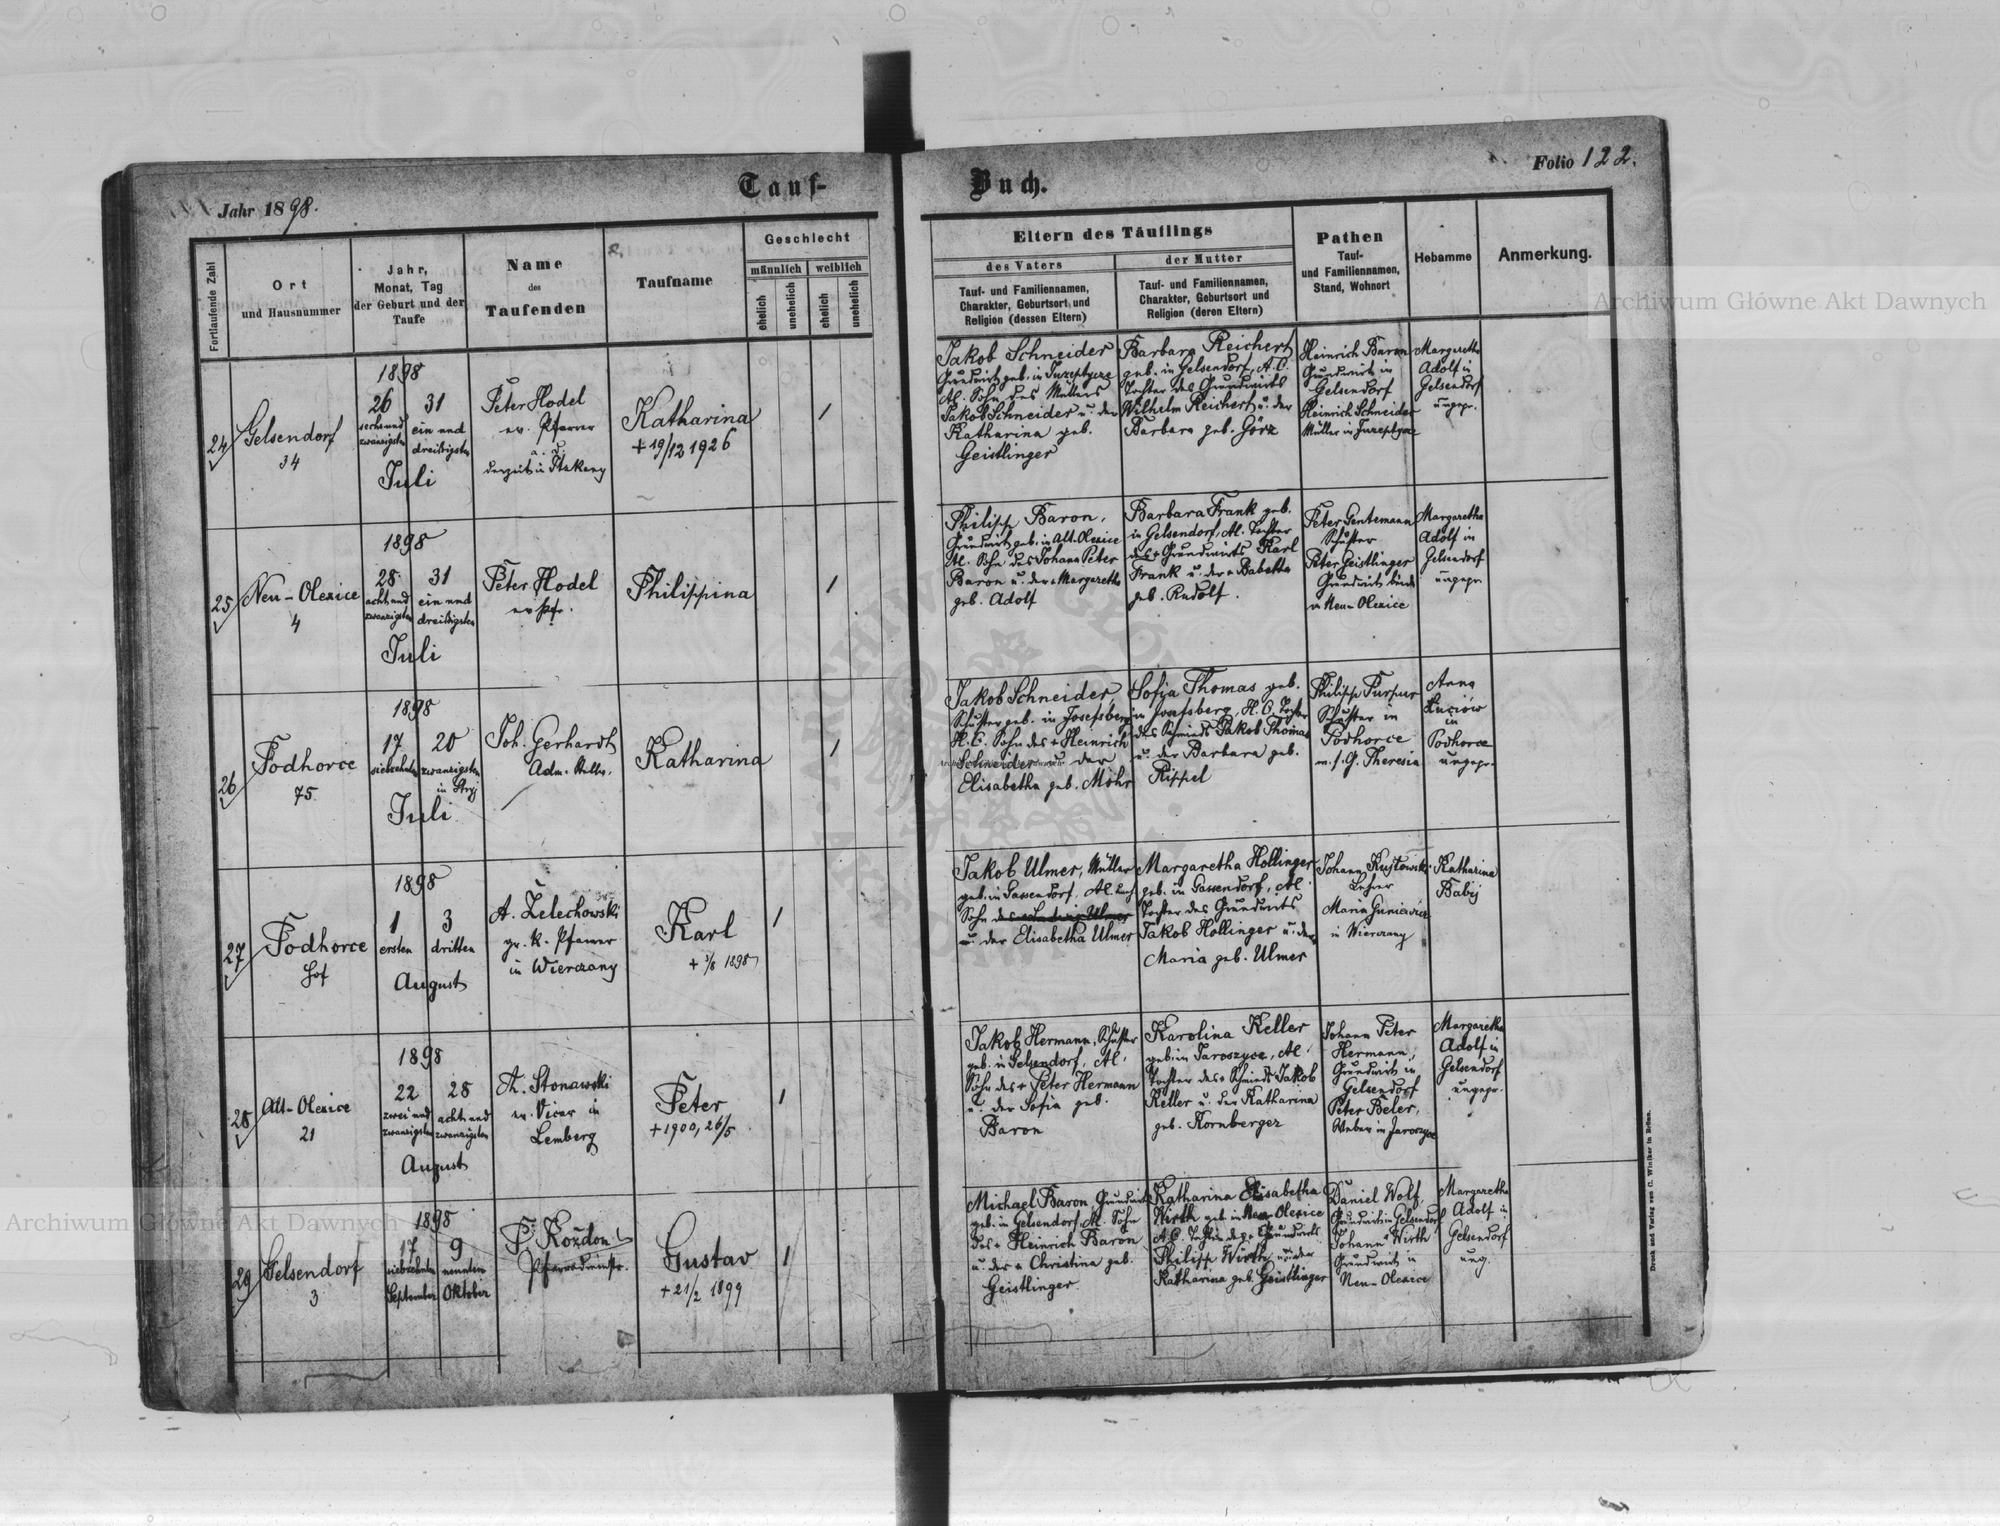 Tauf-
Buch.
Jahr 1898.
Folio 122.
Fortlaufende Zahl
Ort
und Hausnummer
Jahr,
Monat, Tag
der Geburt und der
Taufe
Name
des
Taufenden
Taufname
Geschlecht
männlich
weiblich
ehelich
unehelich
ehelich
unehelich
Eltern des Täuflings
des Vaters
der Mutter
Tauf- und Familiennamen,
Charakter, Geburtsort und
Religion (dessen Eltern)
Tauf- und Familiennamen,
Charakter, Geburtsort und
Religion (deren Eltern)
Pathen
Tauf-
und Familiennamen,
Stand, Wohnort
Hebamme
Anmerkung.
24
Gelsendorf
34
1898
26 31
sechs und
zwanzigsten
ein und
dreißigsten
Juli
Peter Hodel
ev. Pfarrer
a. d.
derzeit in
Katharina
+ 19/12 1926
1
Jakob Schneider
Grundwirt geb. in
A.C. Sohn des Müllers
Jakob Schneider u. der
Katharina geb.
Geistlinger
Barbara Reichert
geb. in Gelsendorf, A.C.
Tochter des Grundwirts
Wilhelm Reichert u. der
Barbara geb. Görz
Heinrich Baron
Grundwirt in
Gelsendorf
Heinrich Schneider
Müller in
Margaretha
Adolf in
Gelsendorf
ungepr.
25
Neu-Olexice
4
1898
28 31
acht und
zwanzigsten
ein und
dreißigsten
Juli
Peter Hodel
ev. Pfr.
Philippina
1
Philipp Baron,
Grundwirt geb. in Alt-Olexice
A.C. Sohn des Johann Peter
Baron u. der + Margaretha
geb. Adolf
Barbara Frank geb.
in Gelsendorf, A.C. Tochter
des + Grundwirts Karl
Frank u. der + Babetta
geb. Rudolf.
Peter Gentemann
Schuster
Peter Geistlinger
Grundwirt beide
in Neu-Olexice
Margaretha
Adolf in
Gelsendorf
ungepr.
26
Podhorce
75
1898
17 20
siebzehnten
zwanzigsten
in Stryj
Juli
Joh. Gerhardt
Adm. Stellv.
Katharina
1
Jakob Schneider
Schuster geb. in Josefsberg
H.C. Sohn des + Heinrich
Schneider u. der
Elisabetha geb. Mohr
Sofia Thomas geb.
in Josefsberg, H.C. Tochter
des Schmieds Jakob Thomas
u. der Barbara geb.
Rippel
Philipp Purpur
Schuster in
Podhorce
m. s. G. Theresia
Anna
Luciow
in
Podhorce
ungepr.
27
Podhorce
Hof
1898
1 3
ersten dritten
August
A. Zelechowski
gr. k. Pfarrer
in Wierczany
Karl
+ 3/8 1898
1
Jakob Ulmer, Müller
geb. in Gassendorf, A.C.
Sohn des + Ludwig Ulmer
u. der Elisabetha Ulmer
Margaretha Hollinger
geb. in Gassendorf, A.C.
Tochter des Grundwirts
Jakob Hollinger u. der
Maria geb. Ulmer
Johann
Lehrer
Maria Guniewicz
in Wierczany
Katharina
Babij
28
Alt-Olexice
21
1898
22 28
zwei und
zwanzigsten
acht und
zwanzigsten
August
A. Stonawski
ev. Vicar in
Lemberg
Peter
+ 1900, 26/5
1
Jakob Hermann, Schuster
geb. in Gelsendorf, A.C.
Sohn des + Peter Hermann
u. der Sofia geb.
Baron
Karolina Keller
geb. in Jaroszyce, A.C.
Tochter des + Schmieds Jakob
Keller u. der Katharina
geb. Kornberger
Johann Peter
Hermann,
Grundwirt in
Gelsendorf
Peter Beler,
Weber in Jaroszyce
Margaretha
Adolf in
Gelsendorf
ungepr.
29
Gelsendorf
3
1898
17 9
siebzehnten neunten
September Oktober
P. Koždon
Pfarradministr.
Gustav
+ 21/2 1899
1
Michael Baron Grundwirt
geb. in Gelsendorf, A.C. Sohn
des + Heinrich Baron
u. der + Christina geb.
Geistlinger
Katharina Elisabetha
Wirth geb. in Neu-Olexice
A.C. Tochter des + Grundwirts
Philipp Wirth u. der
Katharina geb. Geistlinger
Daniel Wolf,
Grundwirt in Gelsendorf
Johann Wirth
Grundwirt in
Neu-Olexice
Margaretha
Adolf in
Gelsendorf
ung.
Druck und Verlag von C. Winiker in Brünn.
Archiwum Główne Akt Dawnych
Archiwum Główne Akt Dawnych